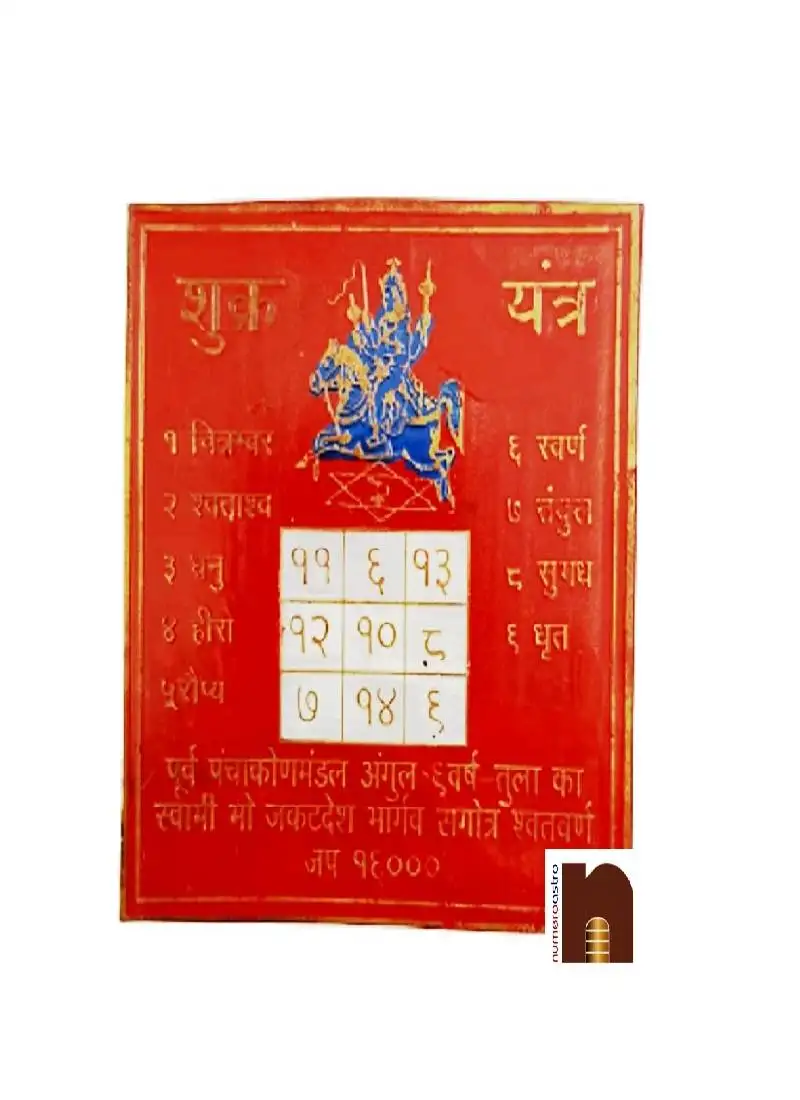 शुक्र यंत्र
१ चित्राम्वर ६ स्वर्ण
२ श्वताश्व ७ तंदुल
३ धनु ८ सुगध
४ हीरा ६ धृत
५ रौप्य
११ ६ १३
१२ १० ८
७ १४ ९
पूर्व पंचाकोणमंडल अंगुल ६ वर्ष तुला का
स्वामी मो जकटदेश भार्गव सगोत्र श्वतवर्ण
जप १६०००
numeroastro
n